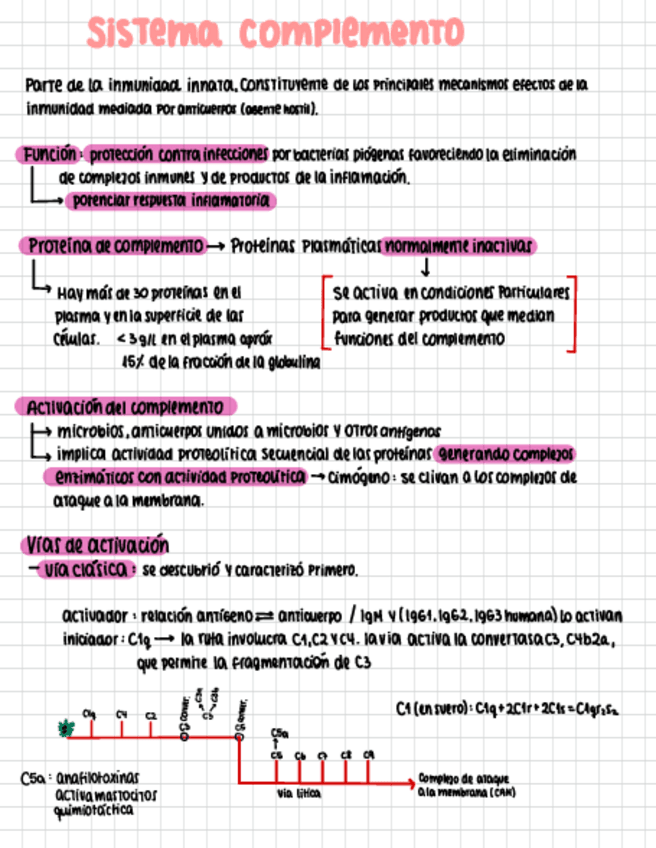 Sistema complemento
Parte de la inmunidad innata. Constituyente de los principales mecanismos efectos de la
inmunidad mediada por anticuerpos (agente hostil).
Función: protección contra infecciones por bacterias piógenas favoreciendo la eliminación
de complejos inmunes y de productos de la inflamación.
potenciar respuesta inflamatoria
Proteína de complemento → Proteínas plasmáticas normalmente inactivas
Hay más de 30 proteínas en el
plasma y en la superficie de las
células. <3 g/L en el plasma apróx
15% de la fracción de la globulina
se activa en condiciones particulares
para generar productos que median
funciones del complemento
Activación del complemento
microbios, anticuerpos unidos a microbios y otros antígenos
implica actividad proteolítica secuencial de las proteínas generando complejos
enzimáticos con actividad proteolítica → cimógeno: se clivan a los complejos de
ataque a la membrana.
Vías de activación
- vía clásica: se descubrió y caracterizó primero.
activador: relación antígeno ⇌ anticuerpo / IgM y (IgG1, IgG2, IgG3 humana) lo activan
iniciador: C1q → la ruta involucra C1, C2 y C4. la vía activa la convertasa C3, C4b2a,
que permite la fragmentación de C3
C1 (en suero): C1q + 2C1r + 2C1s = C1qr₂s₂
C1q C4 C2 C3 conver. C3a C3b C3 C5 conver.
C5a
C5 C6 C7 C8 C9
Vía lítica
Complejo de ataque
a la membrana (CAM)
C5a: anafilotoxinas
activa mastocitos
quimiotáctica